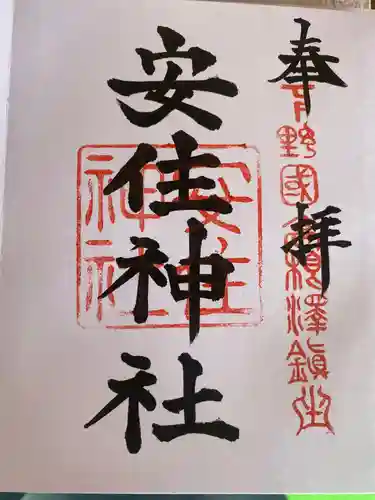 奉拝
下野國粟澤鎮坐
安住神社
安住神社